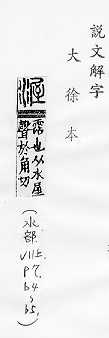 說文解字
大徐本
渥
霑也从水屋
聲於角切
(水部. VII上. P7. b4~b5.)